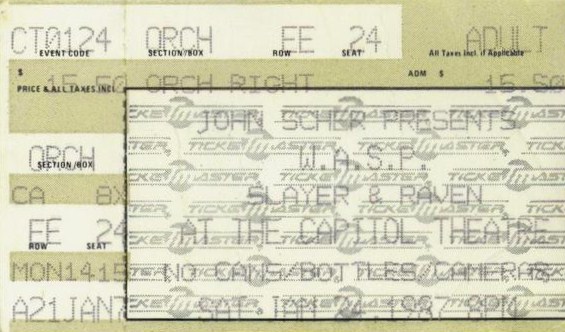 CT0124 ORCH EE 24 ADULT
EVENT CODE SECTION/BOX ROW SEAT All Taxes Incl. if Applicable
$ 15.50 ORCH RIGHT ADM $ 15.50
PRICE & ALL TAXES INCL.
JOHN SCHER PRESENTS
ORCH W.A.S.P.
SECTION/BOX
CA 8X SLAYER & RAVEN
EE 24 AT THE CAPITOL THEATRE
ROW SEAT
MON1415 NO CANS/BOTTLES/CAMERAS
A21JAN7 SAT JAN 24,1987 8PM